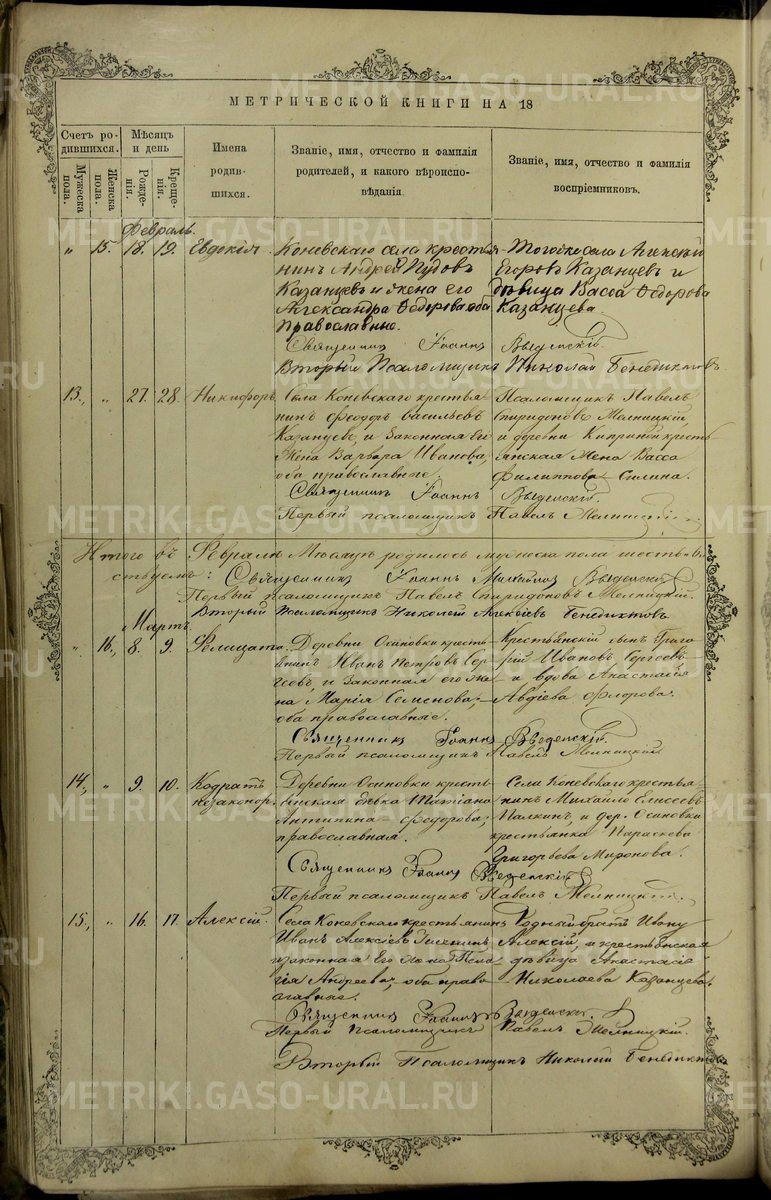 МЕТРИЧЕСКОЙ КНИГИ НА 18
Счетъ родившихся.
Мужеска пола.
Женска пола.
Мѣсяцъ и день
Рожденія.
Крещенія.
Имена родившихся.
Званіе, имя, отчество и фамилія родителей, и какого вѣроисповѣданія.
Званіе, имя, отчество и фамилія воспріемниковъ.
Февраль
" 15. 18. 19. Евдокія.
Коневскаго села крестья-
нинъ Андрей Пудовъ
Казанцевъ и жена его
Александра Ѳедорова оба
Православные.
Тогоже села Алексѣй
Егоровъ Казанцевъ и
дѣвица Васса Ѳедорова
Казанцева.
Священникъ Іоаннъ Введенскій.
Вторый Псаломщикъ Николай Бенедиктовъ
13., " 27. 28. Никифоръ
Села Коневскаго крестья-
нинъ Ѳеодоръ Васильевъ
Казанцевъ, и законная его
жена Варвара Иванова,
оба православные.
Псаломщикъ Павелъ
Спиридоновъ Мелницкій,
и деревни Киприной кресть-
янская жена Васса
Филиппова Силина.
Священникъ Іоаннъ Введенскій.
Первый псаломщикъ Павелъ Мелницкій.
Итого въ Февралѣ Мѣсяцѣ родилось мужеска пола шесть
Священникъ Іоаннъ Михайловъ Введенскій
Первый псаломщикъ Павелъ Спиридоновъ Мелницкій.
Вторый Псаломщикъ Николай Алексѣевъ Бенедиктовъ
Мартъ.
" 16., 8. 9. Фелицата.
Деревни Осиновки кресть-
янинъ Иванъ Петровъ Сер-
геевъ, и законная его же-
на Марія Семенова,
оба православные.
Крестьянскій сынъ Григо-
рій Ивановъ Сергеевъ
и вдова Анастасія
Авдіева Флорова.
Священникъ Іоаннъ Введенскій.
Первый псаломщикъ Павелъ Мелницкій
14., " 9. 10. Кодратъ
незаконор.
Деревни Осиновки кресть-
янская дѣвка Татіана
Антипина Ѳеодорова,
православная.
Села Коневскаго крестья-
нинъ Михаило Елисеевъ
Палкинъ, и дер. Осиновки
крестьянка Параскева
Григорьева Миронова.
Священникъ Іоаннъ Введенскій
Первый псаломщикъ Павелъ Мелницкій.
15., " 16. 17. Алексій.
Села Коневскаго крестьянинъ
Иванъ Алексѣевъ
и законная его жена Пела-
гія Андреева, оба право-
славные.
Родный братъ Ивану
Алексій, и крестьянская
дѣвица Анастасія
Николаева Казанцева.
Священникъ Іоаннъ Введенскій.
Первый Псаломщикъ Павелъ Мелницкій.
Вторый Псаломщикъ Николай Бенедиктовъ
METRIKI.GASO-URAL.RU